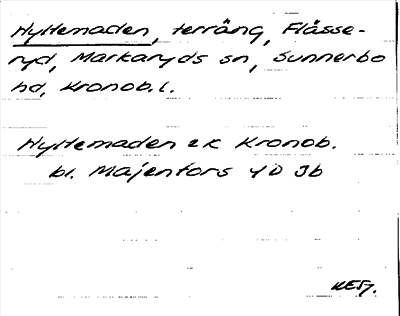 Hyltemaden, terräng, Flässe-
ryd, Markaryds sn, Sunnerbo
hd, Kronob.l.
Hyltemaden ek Kronob.
bl. Majenfors 4 D Jb